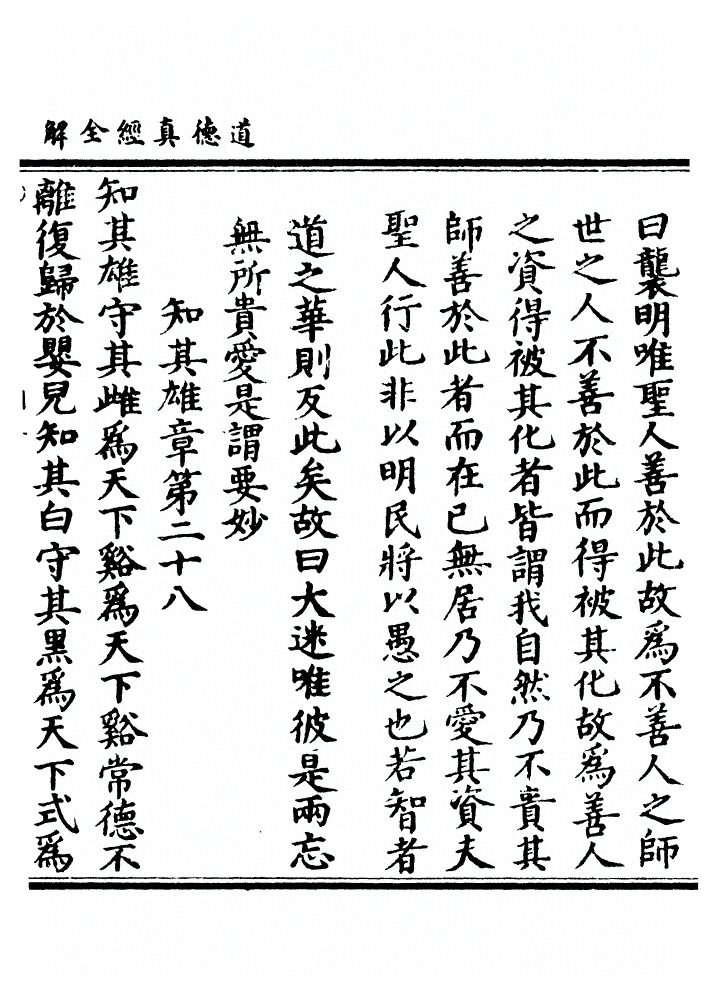 道德真經全解
曰襲明唯聖人善於此故爲不善人之師
世之人不善於此而得被其化故爲善人
之資得被其化者皆謂我自然乃不貴其
師善於此者而在已無居乃不愛其資夫
聖人行此非以明民將以愚之也若智者
道之華則反此矣故曰大迷唯彼是兩忘
無所貴愛是謂要妙
知其雄章第二十八
知其雄守其雌爲天下谿爲天下谿常德不
離復歸於嬰兒知其白守其黑爲天下式爲